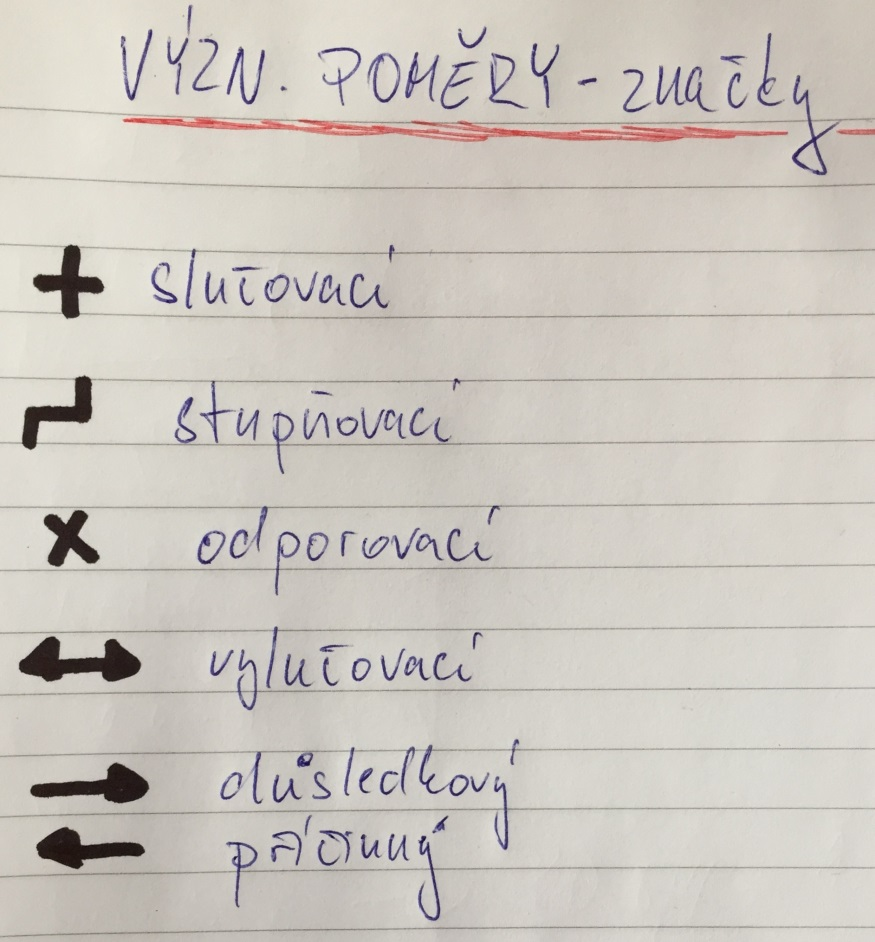 VÝZN. POMĚRY - značky
+ slučovací
stupňovací
x odporovací
↔ vylučovací
→ důsledkový
← příčinný